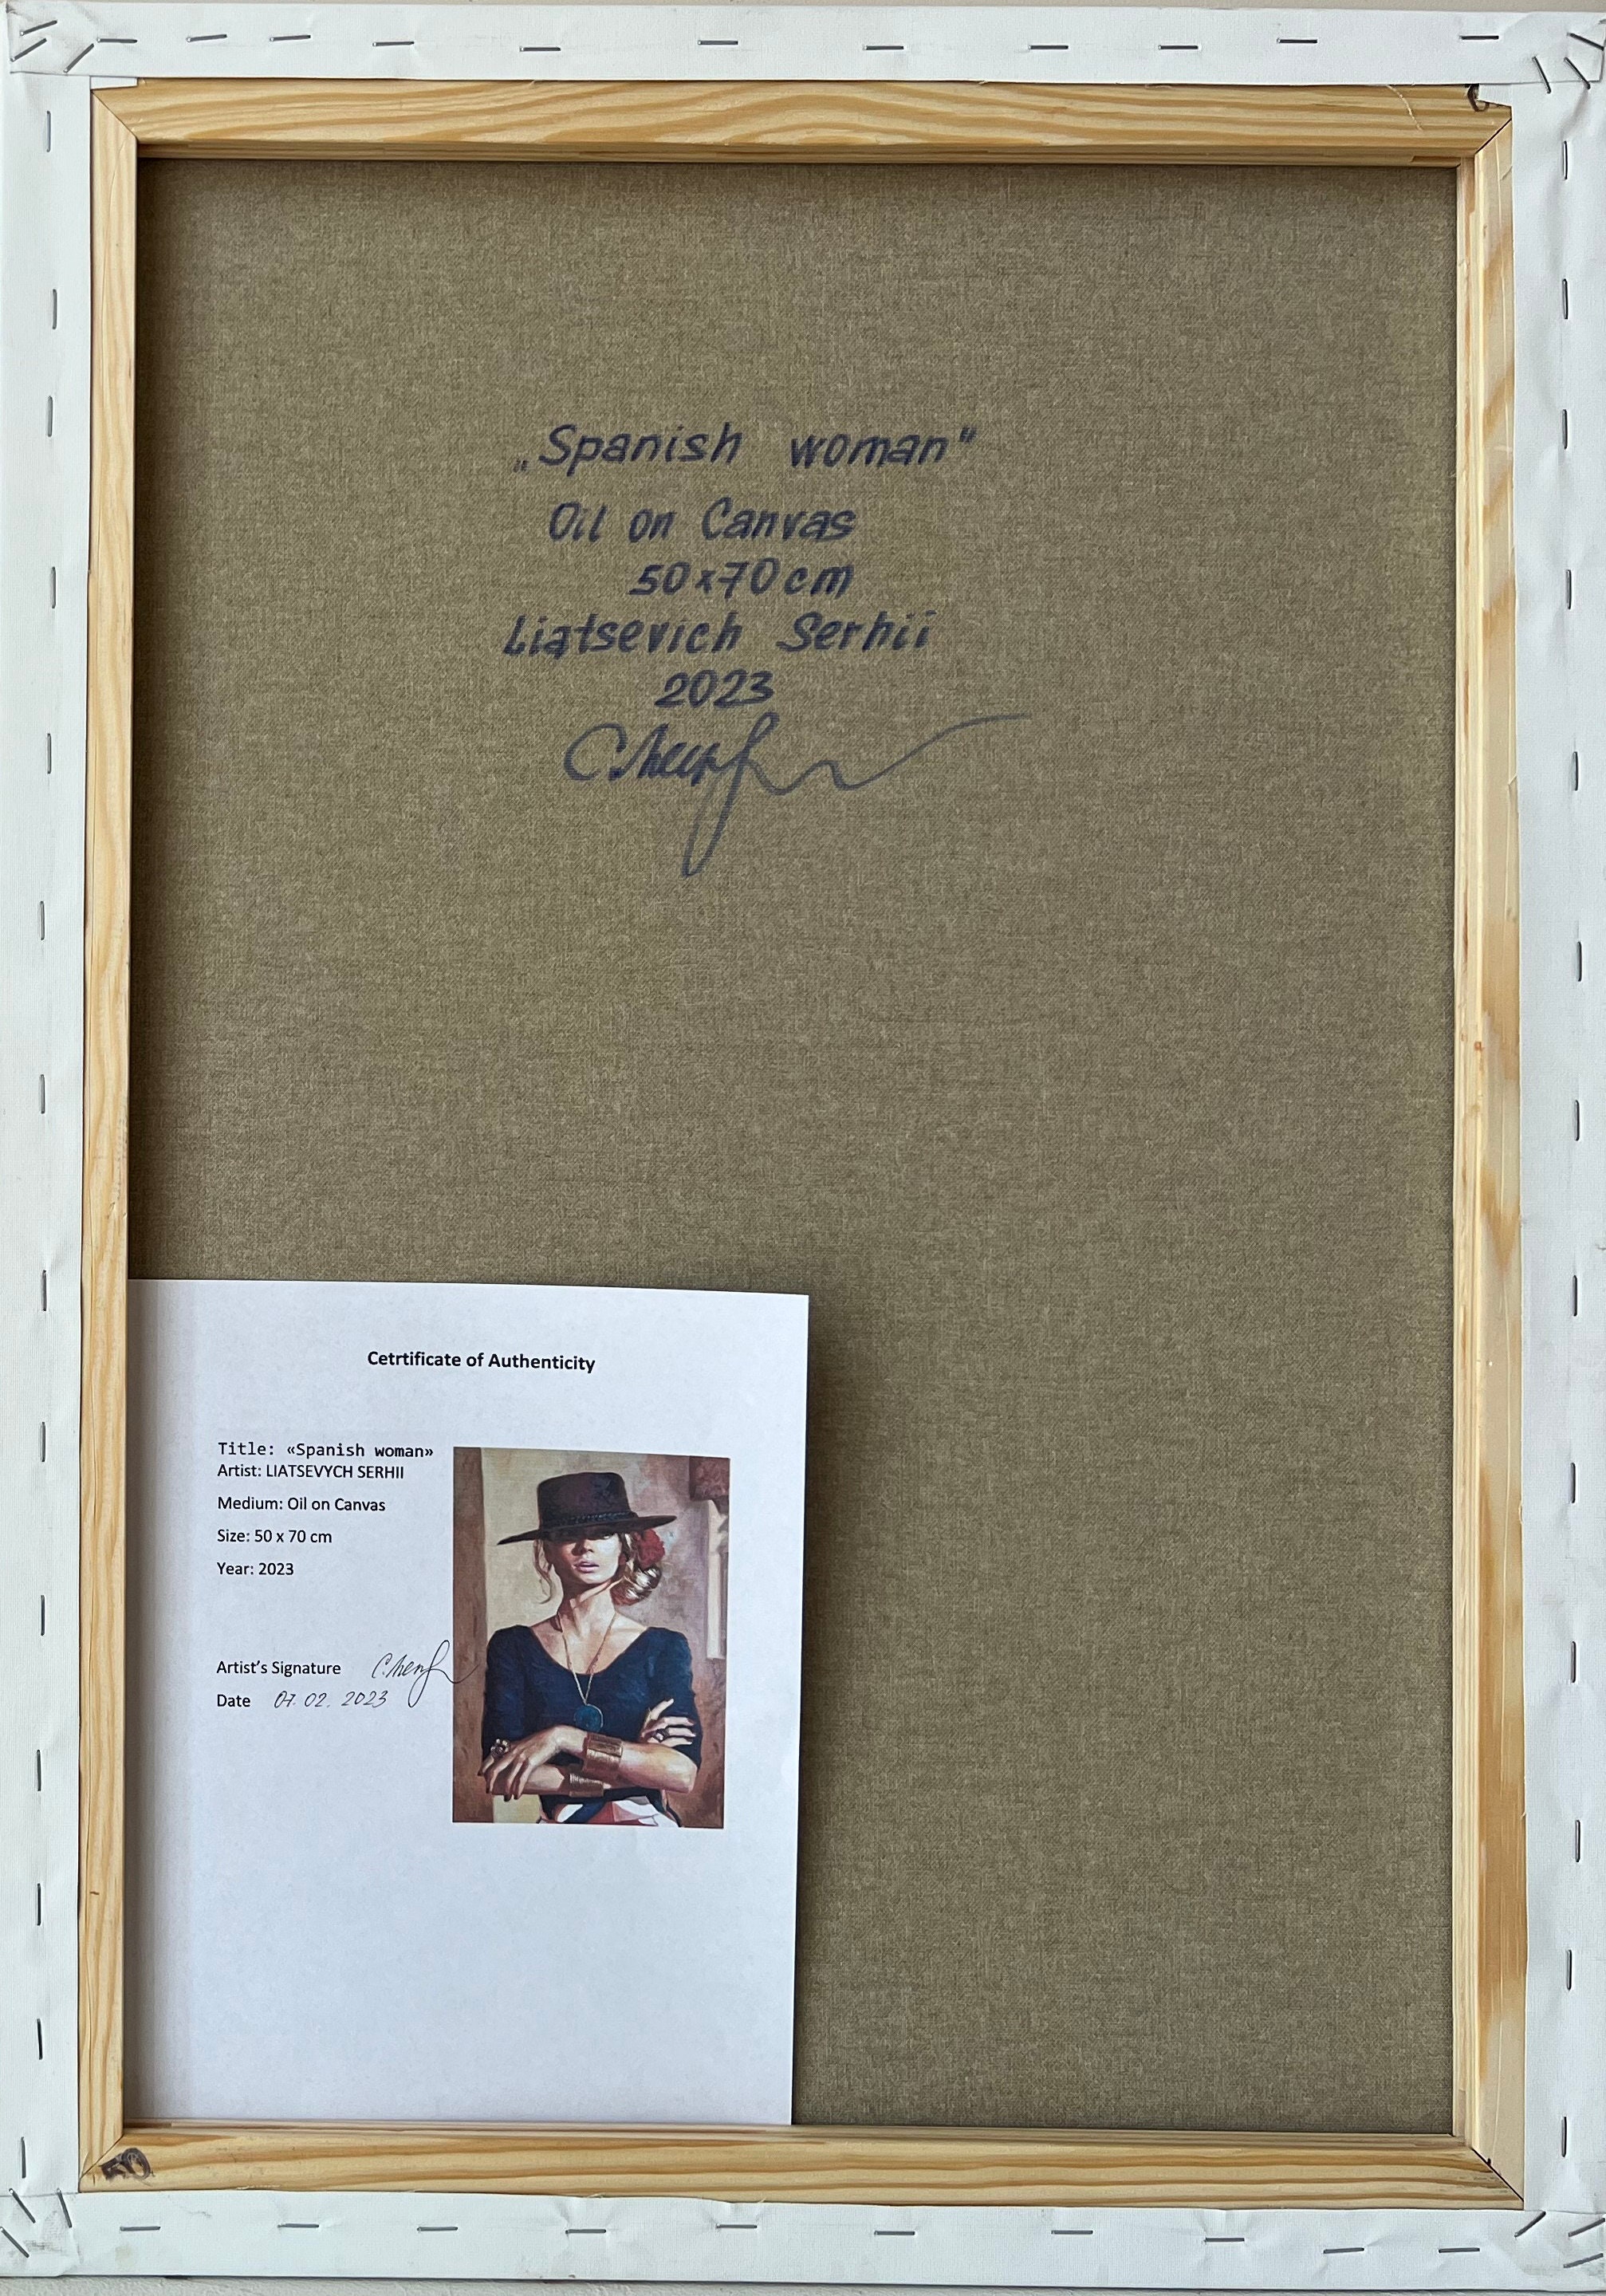 „Spanish woman"
Oil on Canvas
50x70cm
Liatsevich Serhii
2023
Cetrtificate of Authenticity
Title: «Spanish woman»
Artist: LIATSEVYCH SERHII
Medium: Oil on Canvas
Size: 50 x 70 cm
Year: 2023
Artist's Signature
Date 07. 02. 2023
50